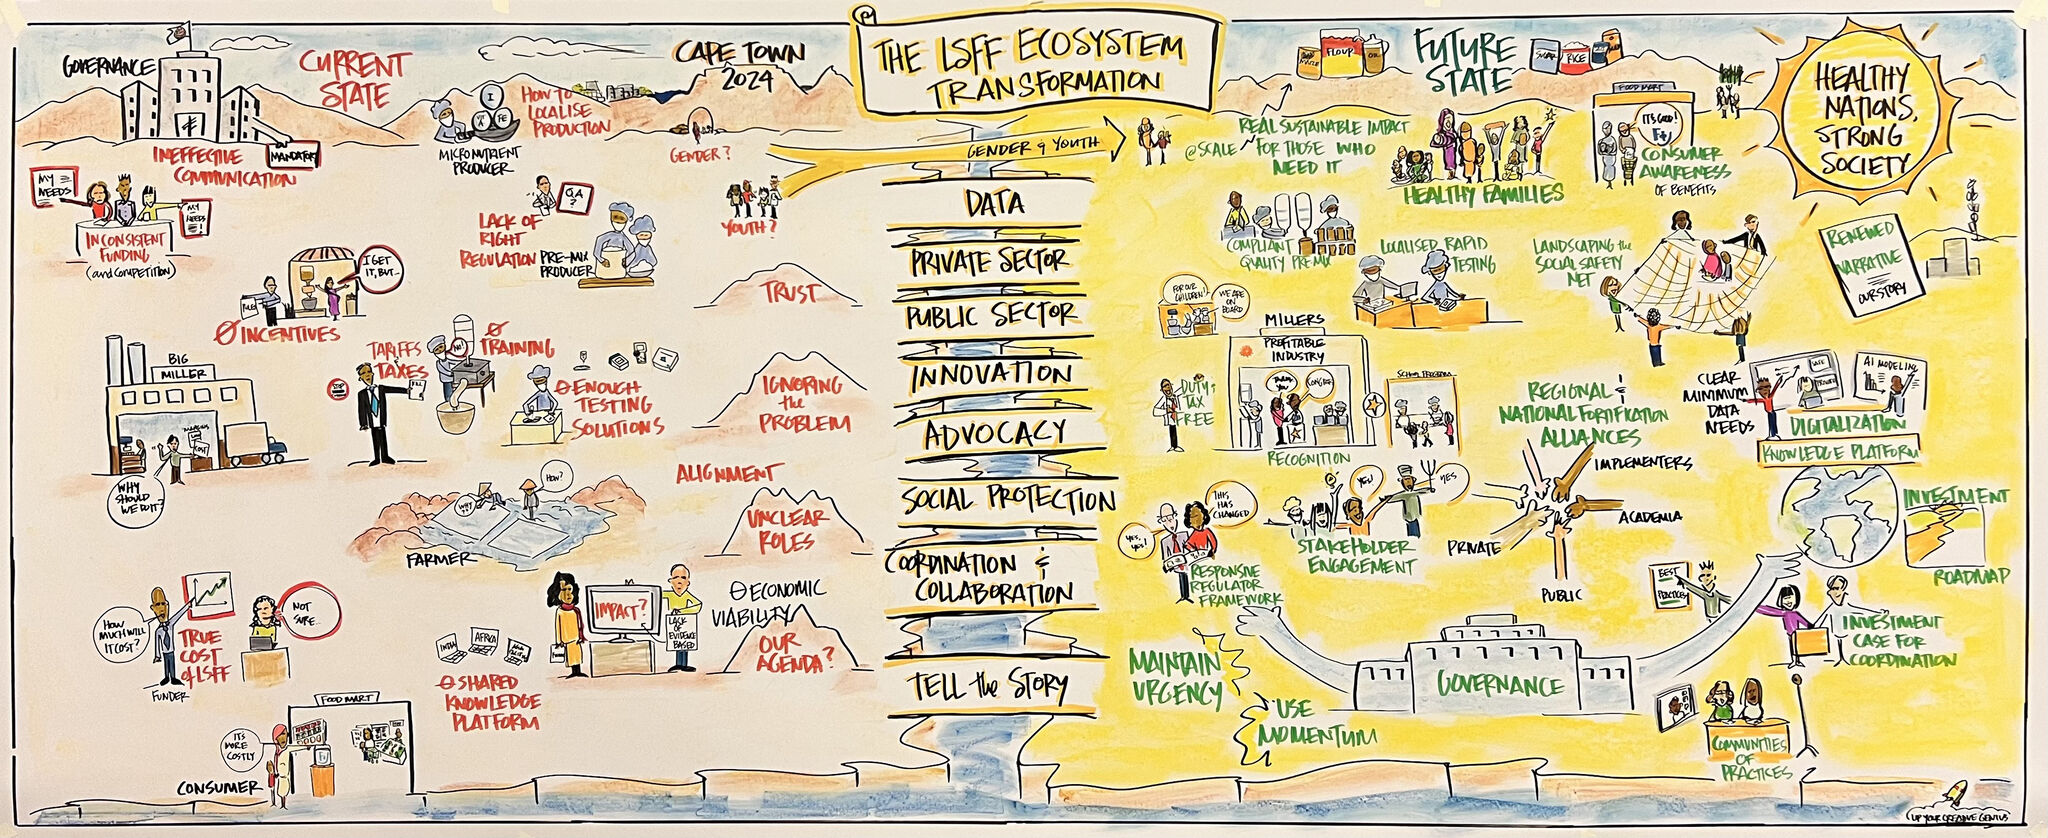 THE LSFF ECOSYSTEM
TRANSFORMATION
GOVERNANCE
CURRENT
STATE
CAPE TOWN
2024
MANDATORY
INEFFECTIVE
COMMUNICATION
MY
NEEDS
MY
NEEDS
INCONSISTENT
FUNDING
(and COMPETITION)
HOW TO
LOCALISE
PRODUCTION
I
FE
MICRONUTRIENT
PRODUCER
GENDER?
YOUTH?
GENDER & YOUTH
LACK OF
RIGHT
REGULATION
QA
?
PRE-MIX
PRODUCER
I GET
IT, BUT...
RULES
Ø INCENTIVES
TRUST
BIG
MILLER
COST
WHY
SHOULD
WE DO IT?
TARIFFS
TAXES
STOP
BILL
NO!
Ø
TRAINING
Ø ENOUGH
TESTING
SOLUTIONS
IGNORING
the
PROBLEM
ALIGNMENT
UNCLEAR
ROLES
WHY?
HOW?
FARMER
HOW
MUCH WILL
IT COST?
FUNDER
TRUE
COST
of LSFF
NOT
SURE...
INDIA
AFRICA
Ø SHARED
KNOWLEDGE
PLATFORM
IMPACT?
LACK OF
EVIDENCE
BASED
Ø ECONOMIC
VIABILITY
OUR
AGENDA?
FOOD MART
ITS
MORE
COSTLY
CONSUMER
DATA
PRIVATE SECTOR
PUBLIC SECTOR
INNOVATION
ADVOCACY
SOCIAL PROTECTION
COORDINATION &
COLLABORATION
TELL the STORY
FUTURE
STATE
MAIZE
FLOUR
OIL
SUGAR
RICE
REAL SUSTAINABLE IMPACT
@ SCALE FOR THOSE WHO
NEED IT
HEALTHY FAMILIES
FOOD MART
IT'S GOOD!
F+
CONSUMER
AWARENESS
OF BENEFITS
HEALTHY
NATIONS,
STRONG
SOCIETY
COMPLIANT
QUALITY PREMIX
LOCALISED RAPID
TESTING
LANDSCAPING the
SOCIAL SAFETY
NET
RENEWED
NARRATIVE
OUR STORY
FOR OUR
CHILDREN!
WE ARE
ON
BOARD
MILLERS
PROFITABLE
INDUSTRY
THANK
YOU
CONGRATS
RECOGNITION
SCHOOL PROGRAM
DUTY &
TAX
FREE
REGIONAL &
NATIONAL FORTIFICATION
ALLIANCES
IMPLEMENTERS
ACADEMIA
PRIVATE
PUBLIC
CLEAR
MINIMUM
DATA
NEEDS
AI MODELING
DIGITALIZATION
KNOWLEDGE PLATFORM
INVESTMENT
ROADMAP
YES,
YES!
THIS
HAS
CHANGED
RESPONSIVE
REGULATOR
FRAMEWORK
YES!
YES
STAKEHOLDER
ENGAGEMENT
BEST
PRACTICES
INVESTMENT
CASE FOR
COORDINATION
MAINTAIN
URGENCY
USE
MOMENTUM
GOVERNANCE
COMMUNITIES
OF
PRACTICES
UP YOUR CREATIVE GENIUS